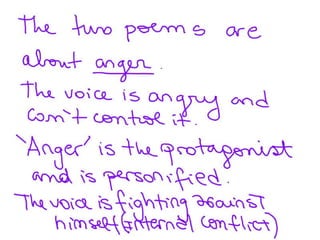 The two poems are
about anger.
The voice is angry and
can't control it.
'Anger' is the protagonist
and is personified.
The voice is fighting against
himself (internal conflict)